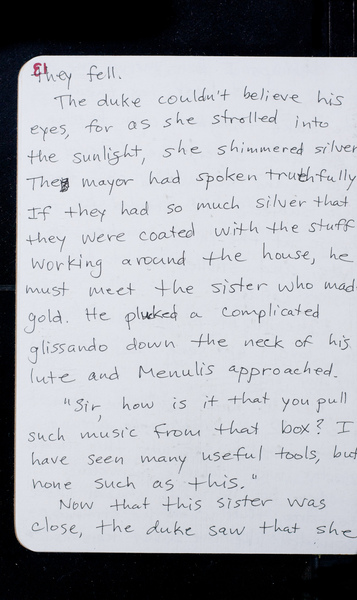 13
they fell.
The duke couldn't believe his
eyes, for as she strolled into
the sunlight, she shimmered silver
The mayor had spoken truthfully
If they had so much silver that
they were coated with the stuff
working around the house, he
must meet the sister who mad
gold. He plucked a complicated
glissando down the neck of his
lute and Menulis approached.
"Sir, how is it that you pull
such music from that box? I
have seen many useful tools, but
none such as this."
Now that this sister was
close, the duke saw that she